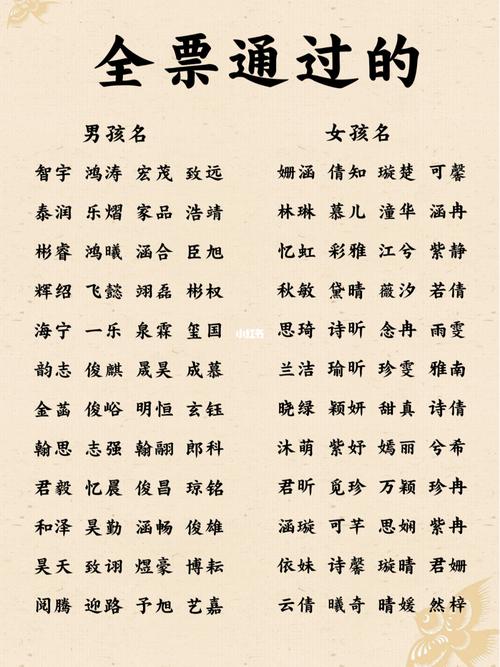 全票通过的
男孩名 女孩名
智宇 鸿涛 宏茂 致远 姗涵 倩知 璇楚 可馨
泰润 乐熠 家品 浩靖 林琳 慕儿 潼华 涵冉
彬睿 鸿曦 涵合 臣旭 忆虹 彩雅 江兮 紫静
辉绍 飞懿 翊磊 彬权 秋敏 黛晴 薇汐 若倩
海宁 一乐 泉霖 玺国 思琦 诗昕 念冉 雨雯
小红书
韵志 俊麒 晟昊 成慕 兰洁 瑜昕 珍雯 雅南
金菡 俊峪 明恒 玄钰 晓绿 颖妍 甜真 诗倩
翰思 志强 翰翮 郎科 沐萌 紫妤 嫣丽 兮希
君毅 忆晨 俊昌 琼铭 君昕 觅珍 万颖 珍冉
和泽 昊勤 涵畅 俊雄 涵璇 可芊 思娴 紫冉
昊天 致诩 煜豪 博耘 依妹 诗馨 璇晴 君姗
阅腾 迎路 予旭 艺嘉 云倩 曦奇 晴媛 然梓